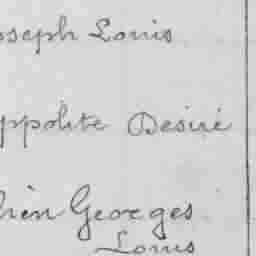 oseph Louis
ppolite Désiré
hien Georges
Louis